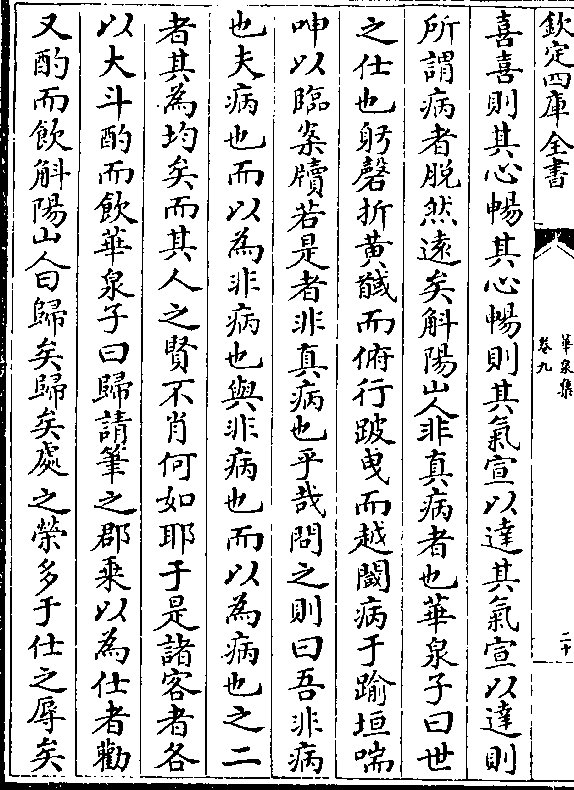 欽定四庫全書
華泉集
卷九
二十
喜喜則其心暢其心暢則其氣宣以達其氣宣以達則
所謂病者脱然遠矣斛陽山人非真病者也華泉子曰世
之仕也躬磬折黄馘而俯行跛曵而越閾病于踰垣喘
呻以臨案牘若是者非真病也乎哉問之則曰吾非病
也夫病也而以為非病也與非病也而以為病也之二
者其為均矣而其人之賢不肖何如耶于是諸客者各
以大斗酌而飲華泉子曰歸請筆之郡乘以為仕者勸
又酌而飲斛陽山人曰歸矣歸矣處之榮多于仕之辱矣